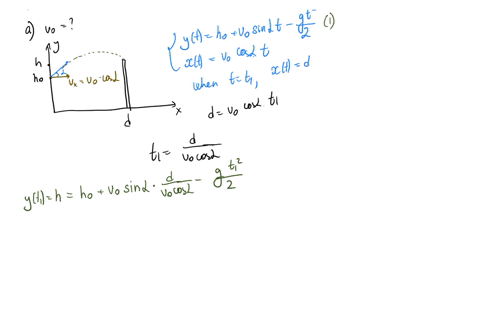 a) v₀ = ?
y
h
h₀
vₓ = v₀·cosα
d
x
y(t) = h₀ + v₀ sinα t − gt²/2 (1)
x(t) = v₀ cosα t
when t = t₁, x(t) = d
d = v₀ cosα t₁
t₁ = d/(v₀ cosα)
y(t₁) = h = h₀ + v₀ sinα · d/(v₀ cosα) − g t₁²/2